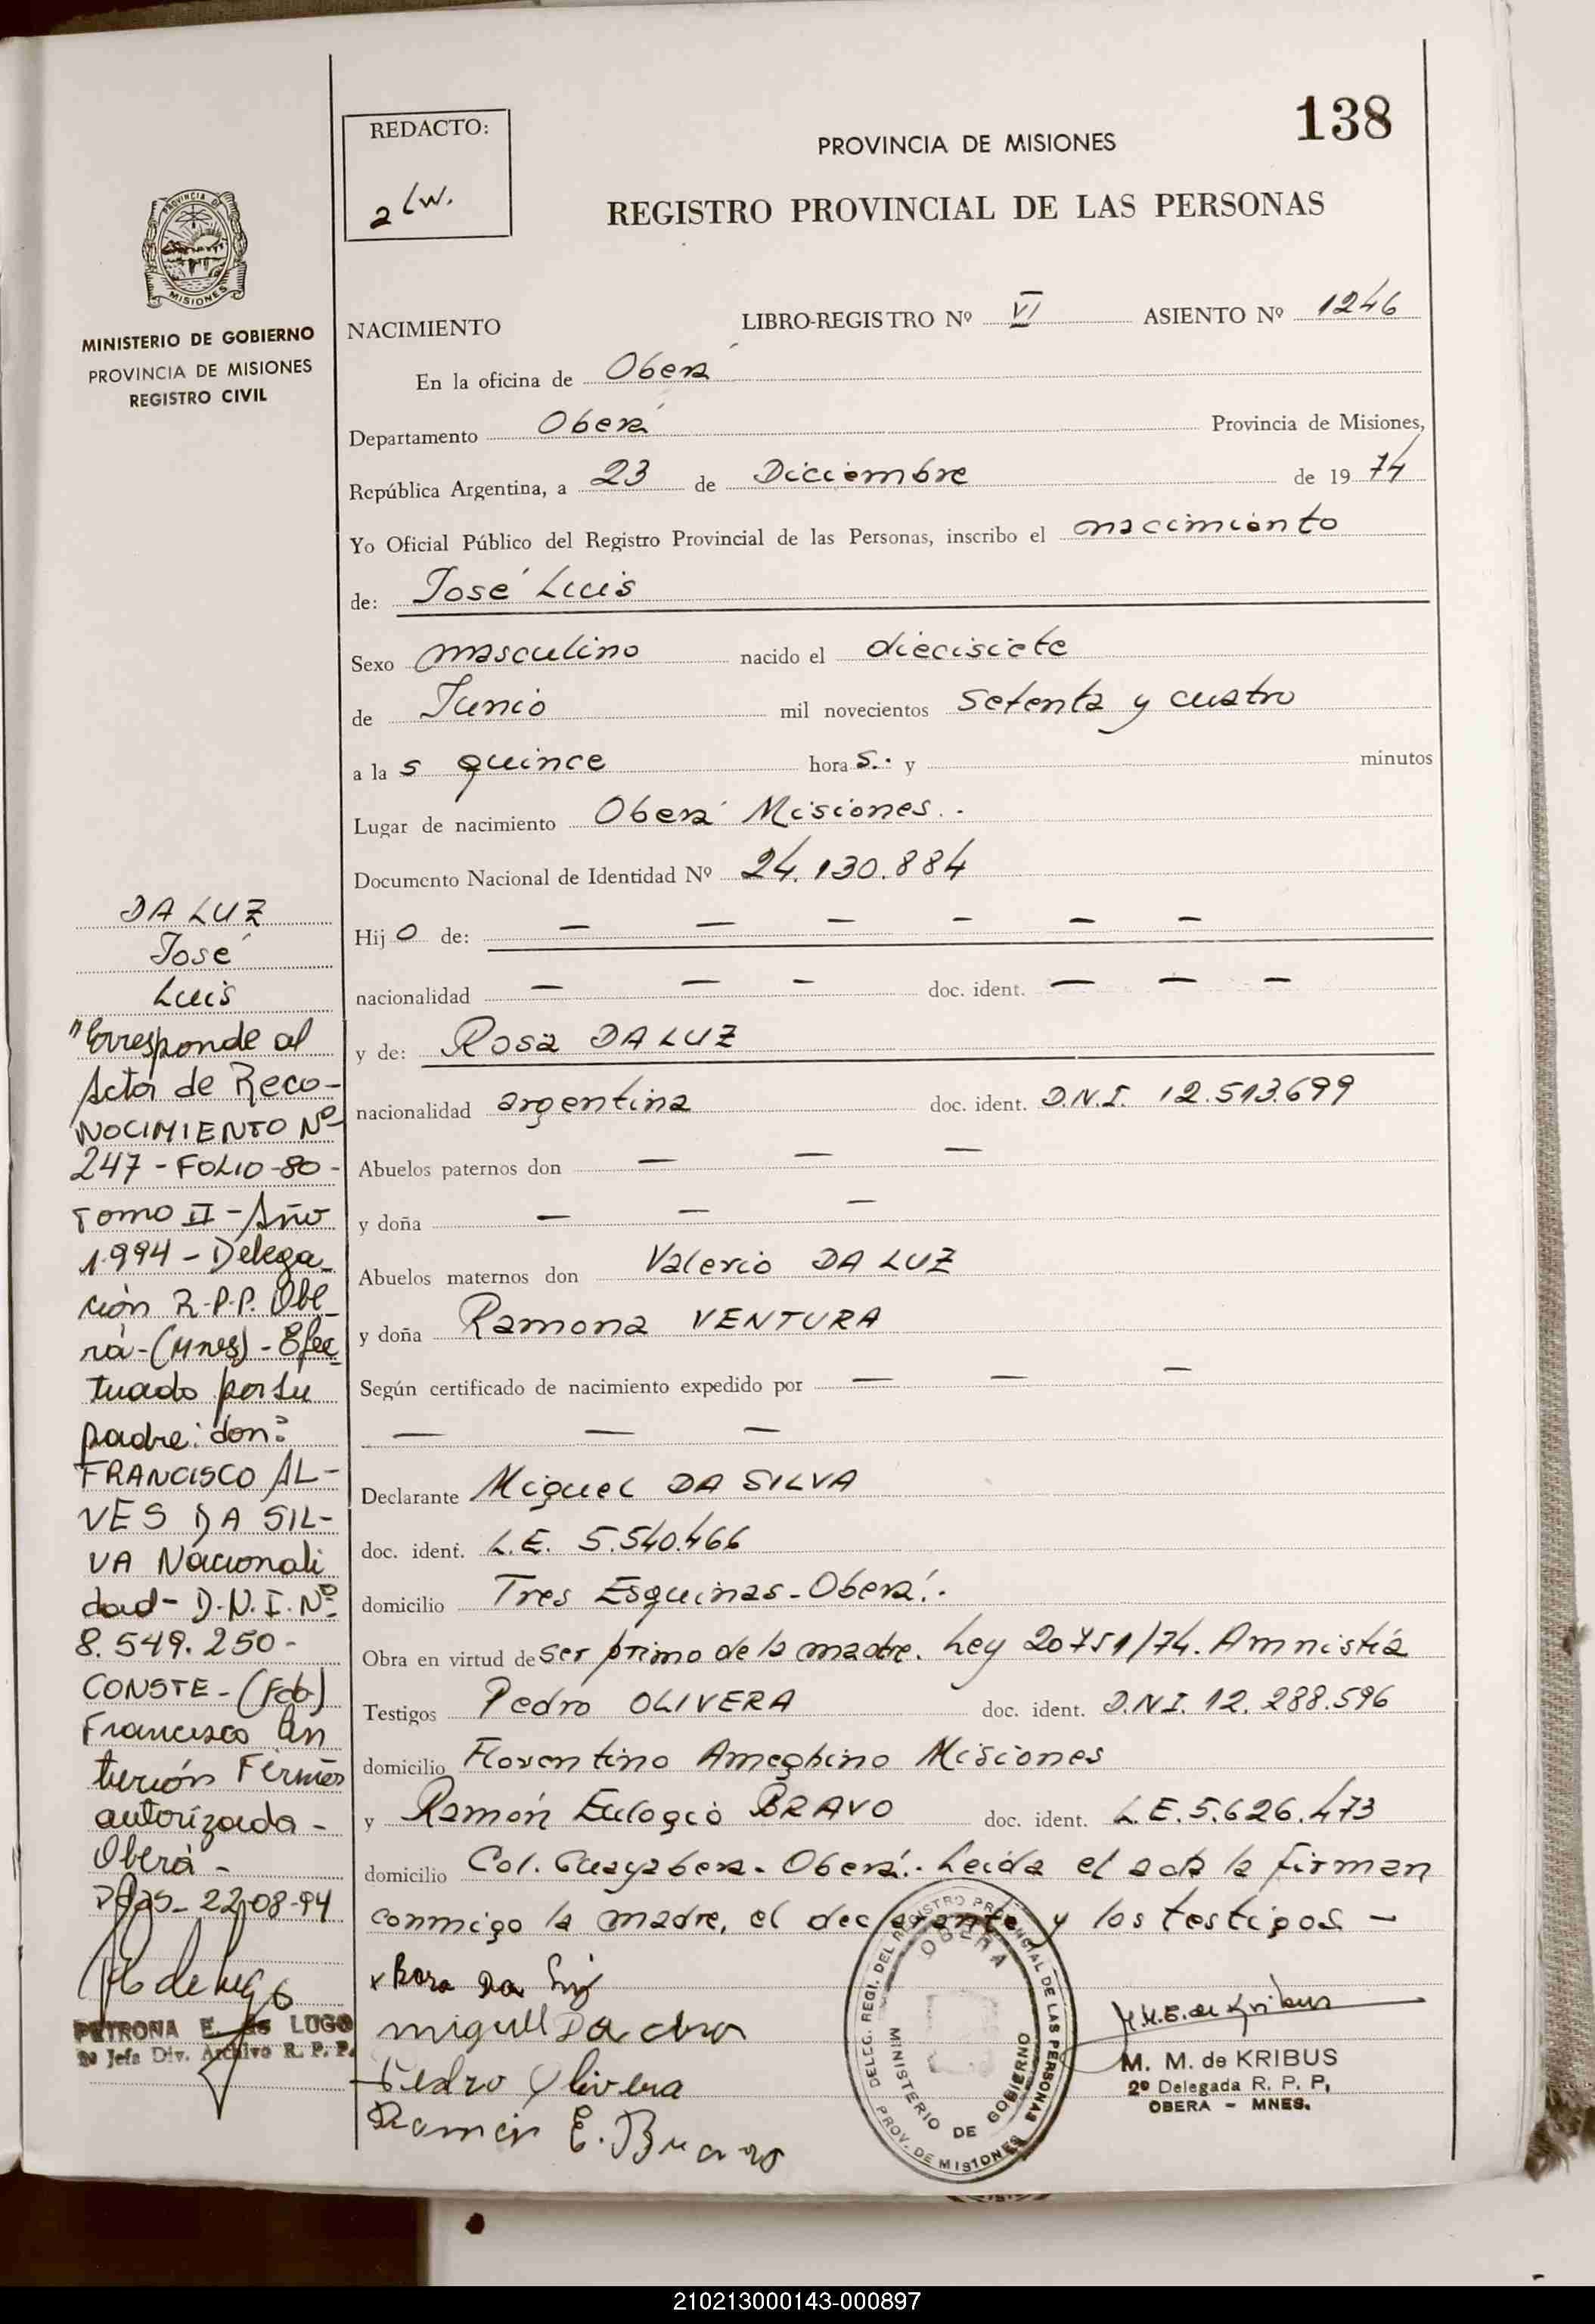 138
REDACTO:
PROVINCIA DE MISIONES
REGISTRO PROVINCIAL DE LAS PERSONAS
PROVINCIA DE
MISIONES
MINISTERIO DE GOBIERNO
PROVINCIA DE MISIONES
REGISTRO CIVIL
NACIMIENTO LIBRO-REGISTRO Nº VI ASIENTO Nº 1246
En la oficina de Oberá
Departamento Oberá Provincia de Misiones,
República Argentina, a 23 de Diciembre de 19 74
Yo Oficial Público del Registro Provincial de las Personas, inscribo el nacimiento
de: José Luis
Sexo masculino nacido el diecisiete
de Junio mil novecientos setenta y cuatro
a la s quince hora s.- y minutos
Lugar de nacimiento Oberá Misiones.-
Documento Nacional de Identidad Nº 24.130.884
Hij o de: — — — — — —
nacionalidad — — — doc. ident. — — —
y de: Rosa DA LUZ
nacionalidad argentina doc. ident. D.N.I. 12.513.699
Abuelos paternos don — — —
y doña — — —
Abuelos maternos don Valerio DA LUZ
y doña Ramona VENTURA
Según certificado de nacimiento expedido por — — —
— — —
Declarante Miguel DA SILVA
doc. ident. L.E. 5.540.466
domicilio Tres Esquinas - Oberá.-
Obra en virtud de ser primo de la madre. Ley 20751/74. Amnistía
Testigos Pedro OLIVERA doc. ident. D.N.I. 12.288.596
domicilio Florentino Ameghino Misiones
y Ramón Eulogio BRAVO doc. ident. L.E. 5.626.473
domicilio Col. Guayabera - Oberá.- Leída el acta la firman
conmigo la madre, el declarante y los testigos -
x Rosa Da Luz
Pedro Olivera
Ramón E. Bravo
DELEG. REGI. DEL REGISTRO PROVINCIAL DE LAS PERSONAS
OBERA
MINISTERIO DE GOBIERNO
PROV. DE MISIONES
M. M. de KRIBUS
2º Delegada R. P. P.
OBERA - MNES.
DA LUZ
José
Luis
"Corresponde al
Acta de Reco-
NOCIMIENTO Nº
247 - FOLIO - 80 -
Tomo II - Año
1.994 - Delega-
ción R.P.P. Obe-
rá - (Mnes) - Efec-
tuado por su
padre: don:
FRANCISCO AL-
VES DA SIL-
VA Nacionali
dad - D.N.I. Nº
8.549.250 -
CONSTE - (Fdo)
Francisco
autorizada -
Oberá -
22-08-94
PETRONA E. de LUGO
2º Jefa Div. Archivo R. P. P.
210213000143-000897